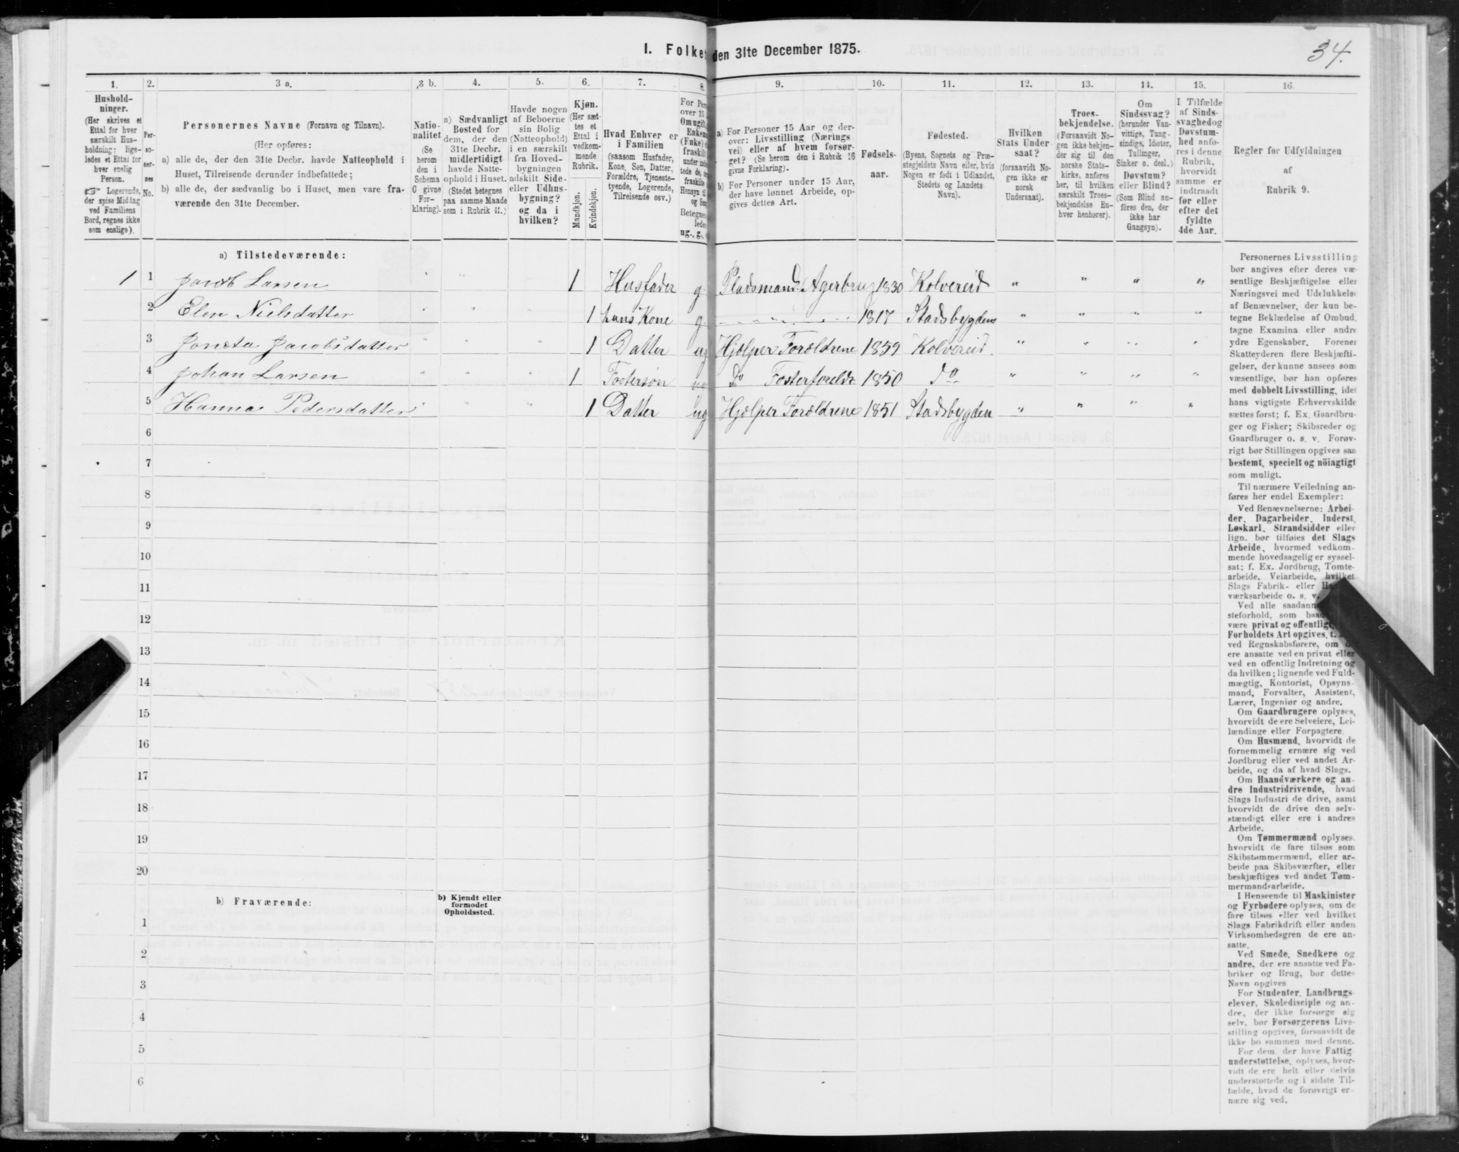 I. Folke den 31te December 1875.
34.
1. 2. 3 a. 3 b. 4. 5. 6. 7. 8. 9. 10. 11. 12. 13. 14. 15. 16.
Hushold-
ninger.
(Her skrives et
Ettal for hver
særskilt Hus-
holdning; lige-
ledes et Ettal for
hver enslig
Person.
☞ Logerende,
der spise Middag
ved Familiens
Bord, regnes ikke
som enslige).
Per-
so-
ner-
nes
No.
Personernes Navne (Fornavn og Tilnavn).
(Her opføres:
a) alle de, der den 31te Decbr. havde Natteophold i
Huset, Tilreisende derunder indbefattede;
b) alle de, der sædvanlig bo i Huset, men vare fra-
værende den 31te December.
Natio-
nalitet
(Se
herom
den i
Schema
O givne
For-
klaring).
a) Sædvanligt
Bosted for
dem, der den
31te Decbr.
midlertidigt
havde Natte-
ophold i Huset.
(Stedet betegnes
paa samme Maade
som i Rubrik 11.)
Havde nogen
af Beboerne
sin Bolig
(Natteophold)
i en særskilt
fra Hoved-
bygningen
adskilt Side-
eller Udhus-
bygning?
og da i
hvilken?
Kjøn.
(Her sæt-
tes et
Ettal i
vedkom-
mende
Rubrik.
Mandkjøn.
Kvindekjøn.
Hvad Enhver er
i Familien
(saasom Husfader,
Kone, Søn, Datter,
Forældre, Tjeneste-
tyende, Logerende,
Tilreisende osv.)
a) For Personer 15 Aar og der-
over: Livsstilling (Nærings-
vei) eller af hvem forsør-
get? (Se herom den i Rubrik 16
givne Forklaring).
b) For Personer under 15 Aar,
der have lønnet Arbeide, op-
gives dettes Art.
Fødsels-
aar.
Fødested.
(Byens, Sognets og Præ-
stegjeldets Navn eller, hvis
Nogen er født i Udlandet,
Stedets og Landets
Navn).
Hvilken
Stats Under-
saat?
(forsaavidt No-
gen ikke er
norsk
Undersaat).
Troes-
bekjendelse.
(Forsaavidt No-
gen ikke bekjen-
der sig til den
norske Stats-
kirke, anføres
her, til hvilken
særskilt Troes-
bekjendelse En-
hver henhører).
Om
Sindssvag?
(herunder Van-
vittige, Tung-
sindige, Idioter,
Tullinger,
Sinker o. desl.)
Døvstum?
eller Blind?
(Som Blind an-
føres den, der
ikke har
Gangsyn).
I Tilfælde
af Sinds-
svaghed og
Døvstum-
hed anfø-
res i denne
Rubrik,
hvorvidt
samme er
indtraadt
før eller
efter det
fyldte
4de Aar.
Regler for Udfyldningen
af
Rubrik 9.
a) Tilstedeværende:
1 1 Jacob Larsen 1 Husfader g. Pladsmand Agerbrug 1830 Kolvereid
2 Elen Nielsdatter 1 hans Kone g. 1817 Stadsbygden
3 Jacobsdatter 1 Datter ug Hjælper Forældrene 1859 Kolvereid.
4 Johan Larsen 1 Do Fosterforeldr 1850 do
5 Hanna Pedersdatter 1 Datter ug Hjælper Forældrene 1851 Stadsbygden
6
7
8
9
10
11
12
13
14
15
16
17
18
19
20
b) Fraværende:
b) Kjendt eller
formodet
Opholdssted.
1
2
3
4
5
6
Personernes Livsstilling
bør angives efter deres væ-
sentlige Beskjæftigelse eller
Næringsvei med Udelukkelse
af Benævnelser, der kun be-
tegne Beklædelse af Ombud,
tagne Examina eller andre
ydre Egenskaber. Forener
Skatteyderen flere Beskjæfti-
gelser, der kunne ansees som
væsentlige, bør han opføres
med dobbelt Livsstilling, idet
hans vigtigste Erhvervskilde
sættes først; f. Ex. Gaardbru-
ger og Fisker; Skibsreder og
Gaardbruger o. s. v. Forøv-
rigt bør Stillingen opgives saa
bestemt, specielt og nöiagtigt
som muligt.
Til nærmere Veiledning an-
føres her endel Exempler:
Ved Benævnelserne: Arbei-
der, Dagarbeider, Inderst,
Løskarl, Strandsidder eller
lign. bør tilføies det Slags
Arbeide, hvormed vedkom-
mende hovedsagelig er syssel-
sat; f. Ex. Jordbrug, Tomte-
arbeide, Veiarbeide, hvilket
Slags Fabrik- eller
værksarbeide o. s. v.
Ved alle saadan
steforhold, som
være privat og offentlig
Forholdets Art opgives, t.
ved Regnskabsførere, om
ere ansatte ved en privat eller
ved en offentlig Indretning og
da hvilken; lignende ved Fuld-
mægtig, Kontorist, Opsyns-
mand, Forvalter, Assistent,
Lærer, Ingeniør og andre.
Om Gaardbrugere oplyses,
hvorvidt de ere Selveiere, Lei-
lændinge eller Forpagtere.
Om Husmænd, hvorvidt de
fornemmelig ernære sig ved
Jordbrug eller ved andet Ar-
beide, og da af hvad Slags.
Om Haandværkere og an-
dre Industridrivende, hvad
Slags Industri de drive, samt
hvorvidt de drive den selv-
stændigt eller ere i andres
Arbeide.
Om Tømmermænd oplyses,
hvorvidt de fare tilsøs som
Skibstømmermænd, eller ar-
beide paa Skibsværfter, eller
beskjæftiges ved andet Tøm-
mermandsarbeide.
I Henseende til Maskinister
og Fyrbødere oplyses, om de
fare tilsøs eller ved hvilket
Slags Fabrikdrift eller anden
Virksomhedsgren de ere an-
satte.
Ved Smede, Snedkere og
andre, der ere ansatte ved Fa-
briker og Brug, bør dettes
Navn opgives
For Studenter, Landbrugs-
elever, Skoledisciple og an-
dre, der ikke forsørge sig
selv, bør Forsørgerens Livs-
stilling opgives, forsaavidt de
ikke bo sammen med denne.
For dem, der have Fattig-
understøttelse, oplyses, hvor-
vidt de ere helt eller delvis
understøttede og i sidste Til-
fælde, hvad de forøvrigt er-
nære sig ved.